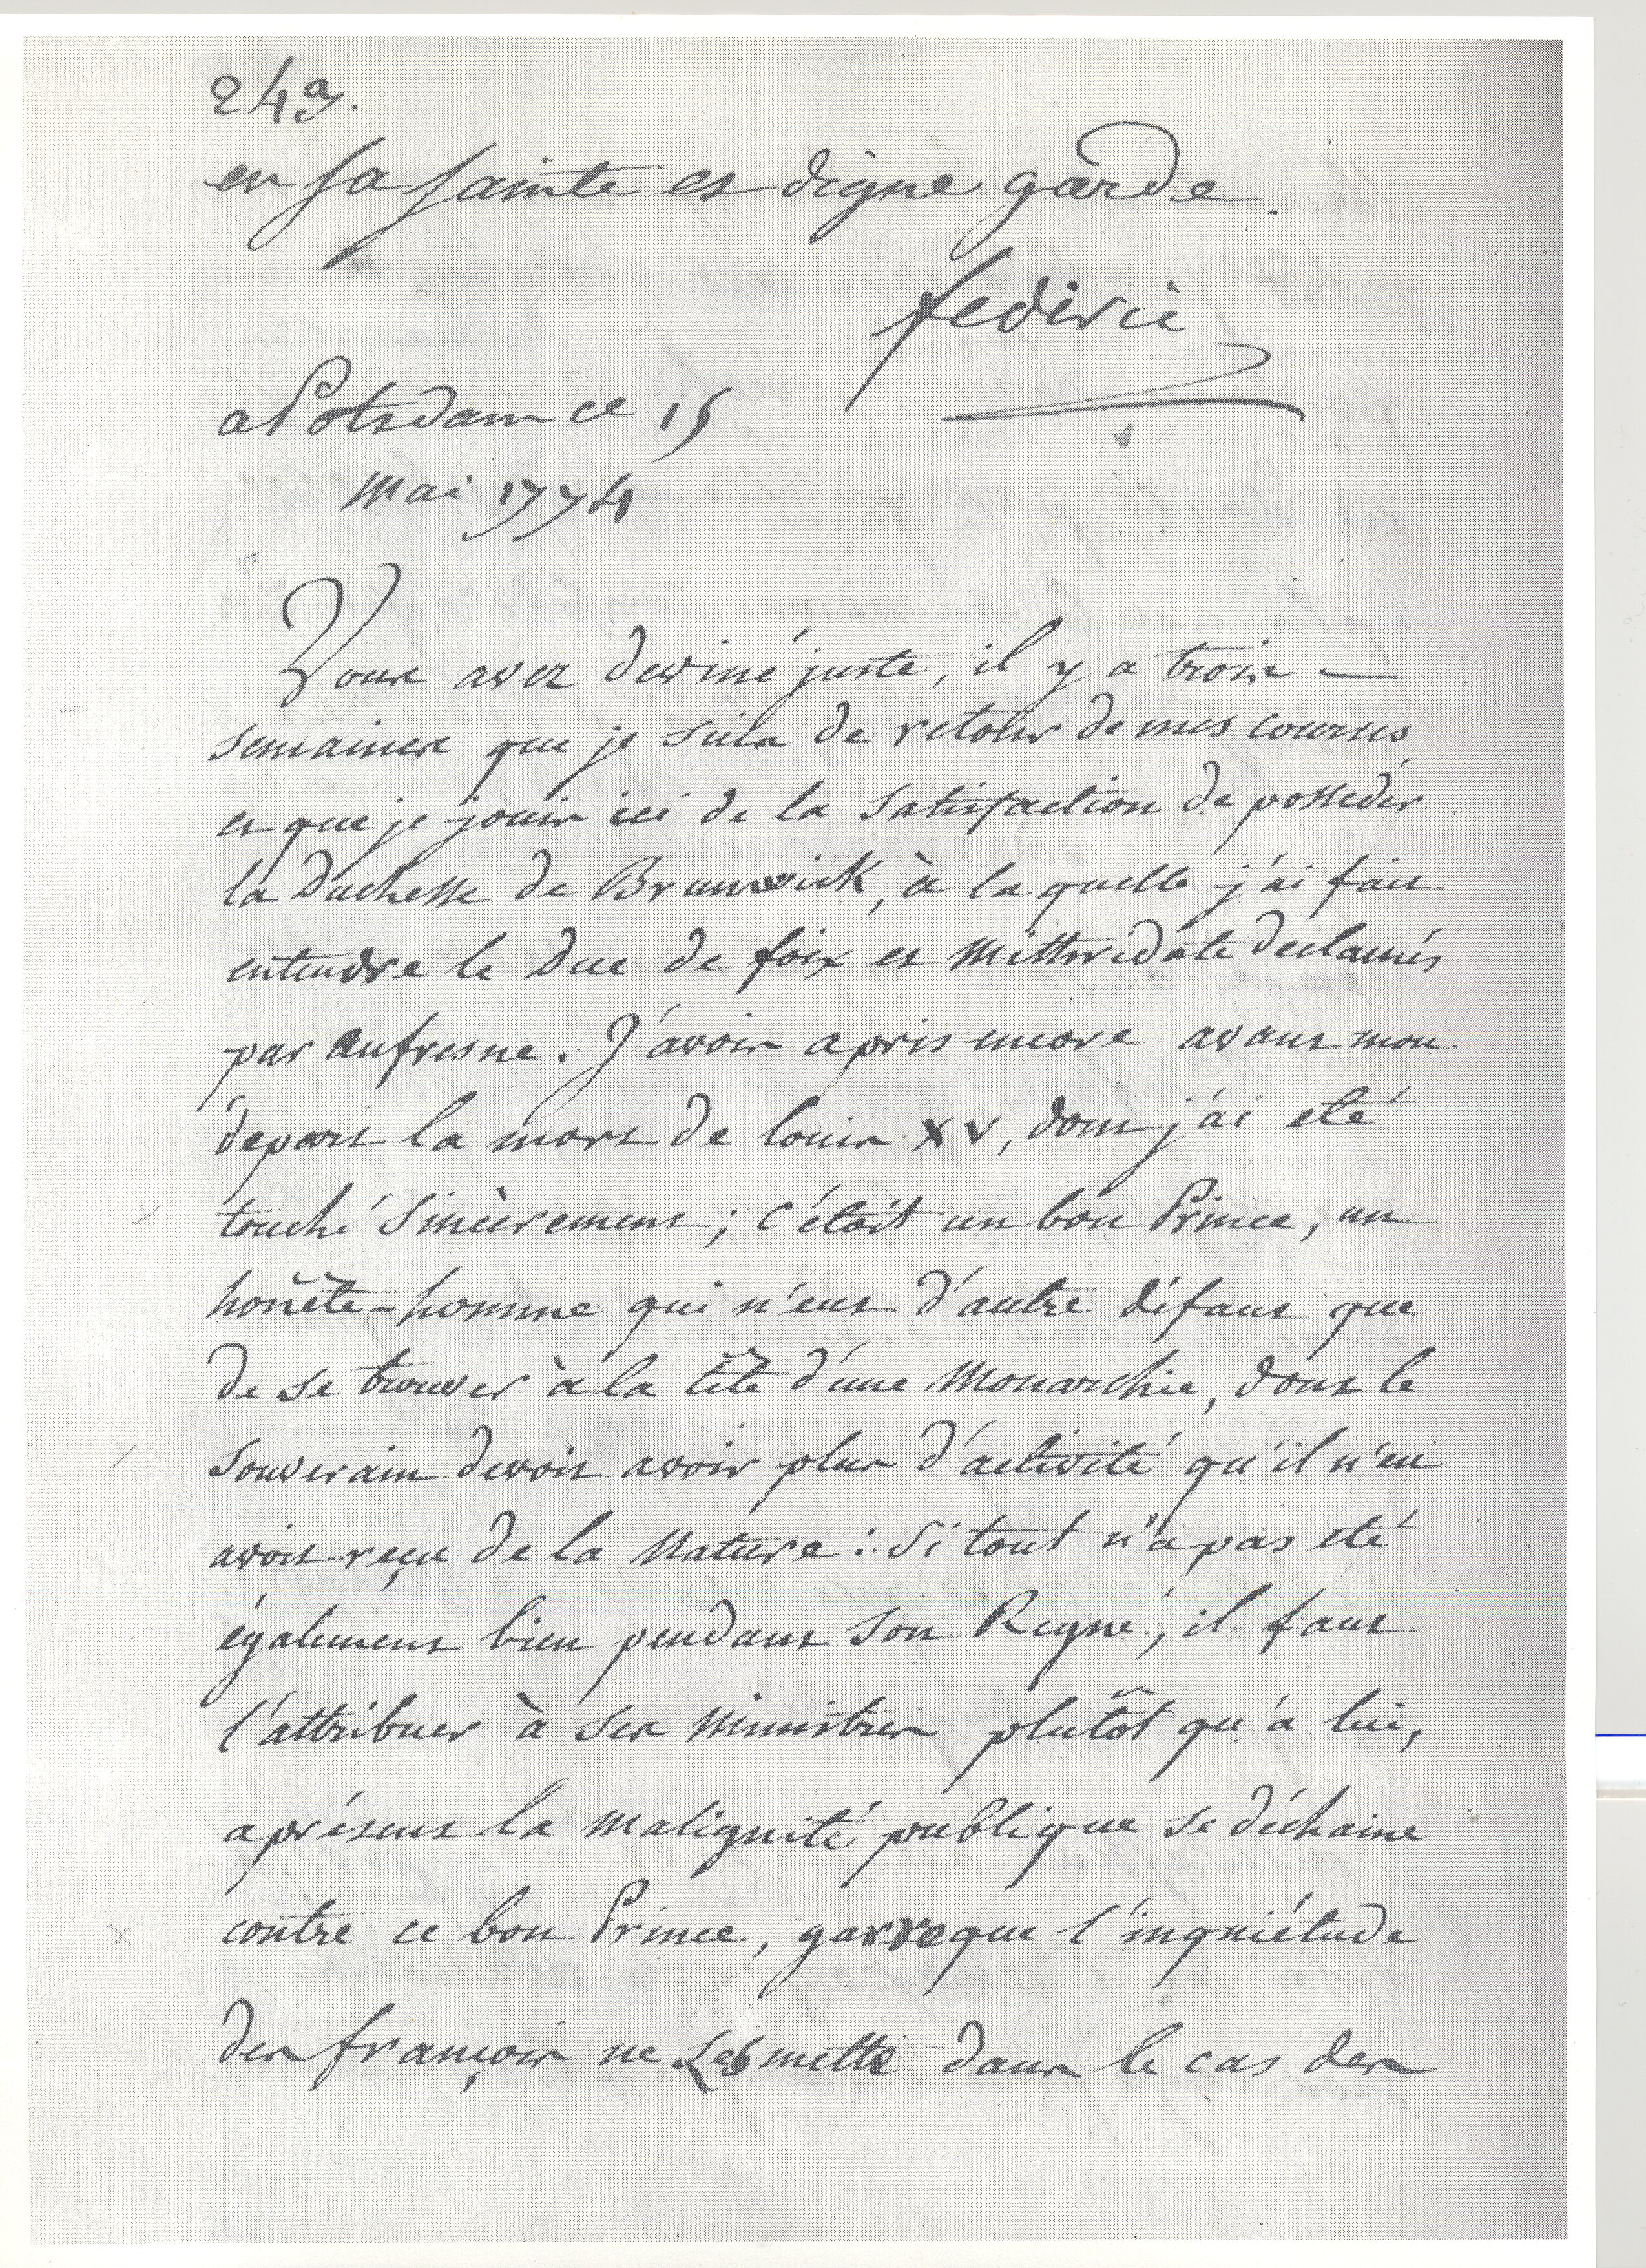 24a.
en sa sainte et digne garde.
federic
a Potsdam ce 15
Mai 1774
Vous avez deviné juste, il y a trois —
semaines que je suis de retour de mes courses
et que je jouis ici de la Satisfaction de posseder
la Duchesse de Brunswick, à la quelle j'ai fait
entendre le Duc de foix et Mithridate declamés
par aufresne. J'avois apris encore avant mon
départ la mort de louis XV, dont j'ai eté
touché Sincèrement ; c'étoit un bon Prince, un
honête-homme qui n'eut d'autre défaut que
de se trouver à la tête d'une Monarchie, dont le
Souverain devoit avoir plus d'activité qu'il n'en
avoit reçu de la Nature : Si tout n'a pas eté
également bien pendant Son Regne, il faut
l'attribuer à Ses Ministres plutôt qu'a lui,
aprésent la malignité publique se déchaine
contre ce bon Prince, garreque l'inquiétude
des françois ne Les mette dans le cas des